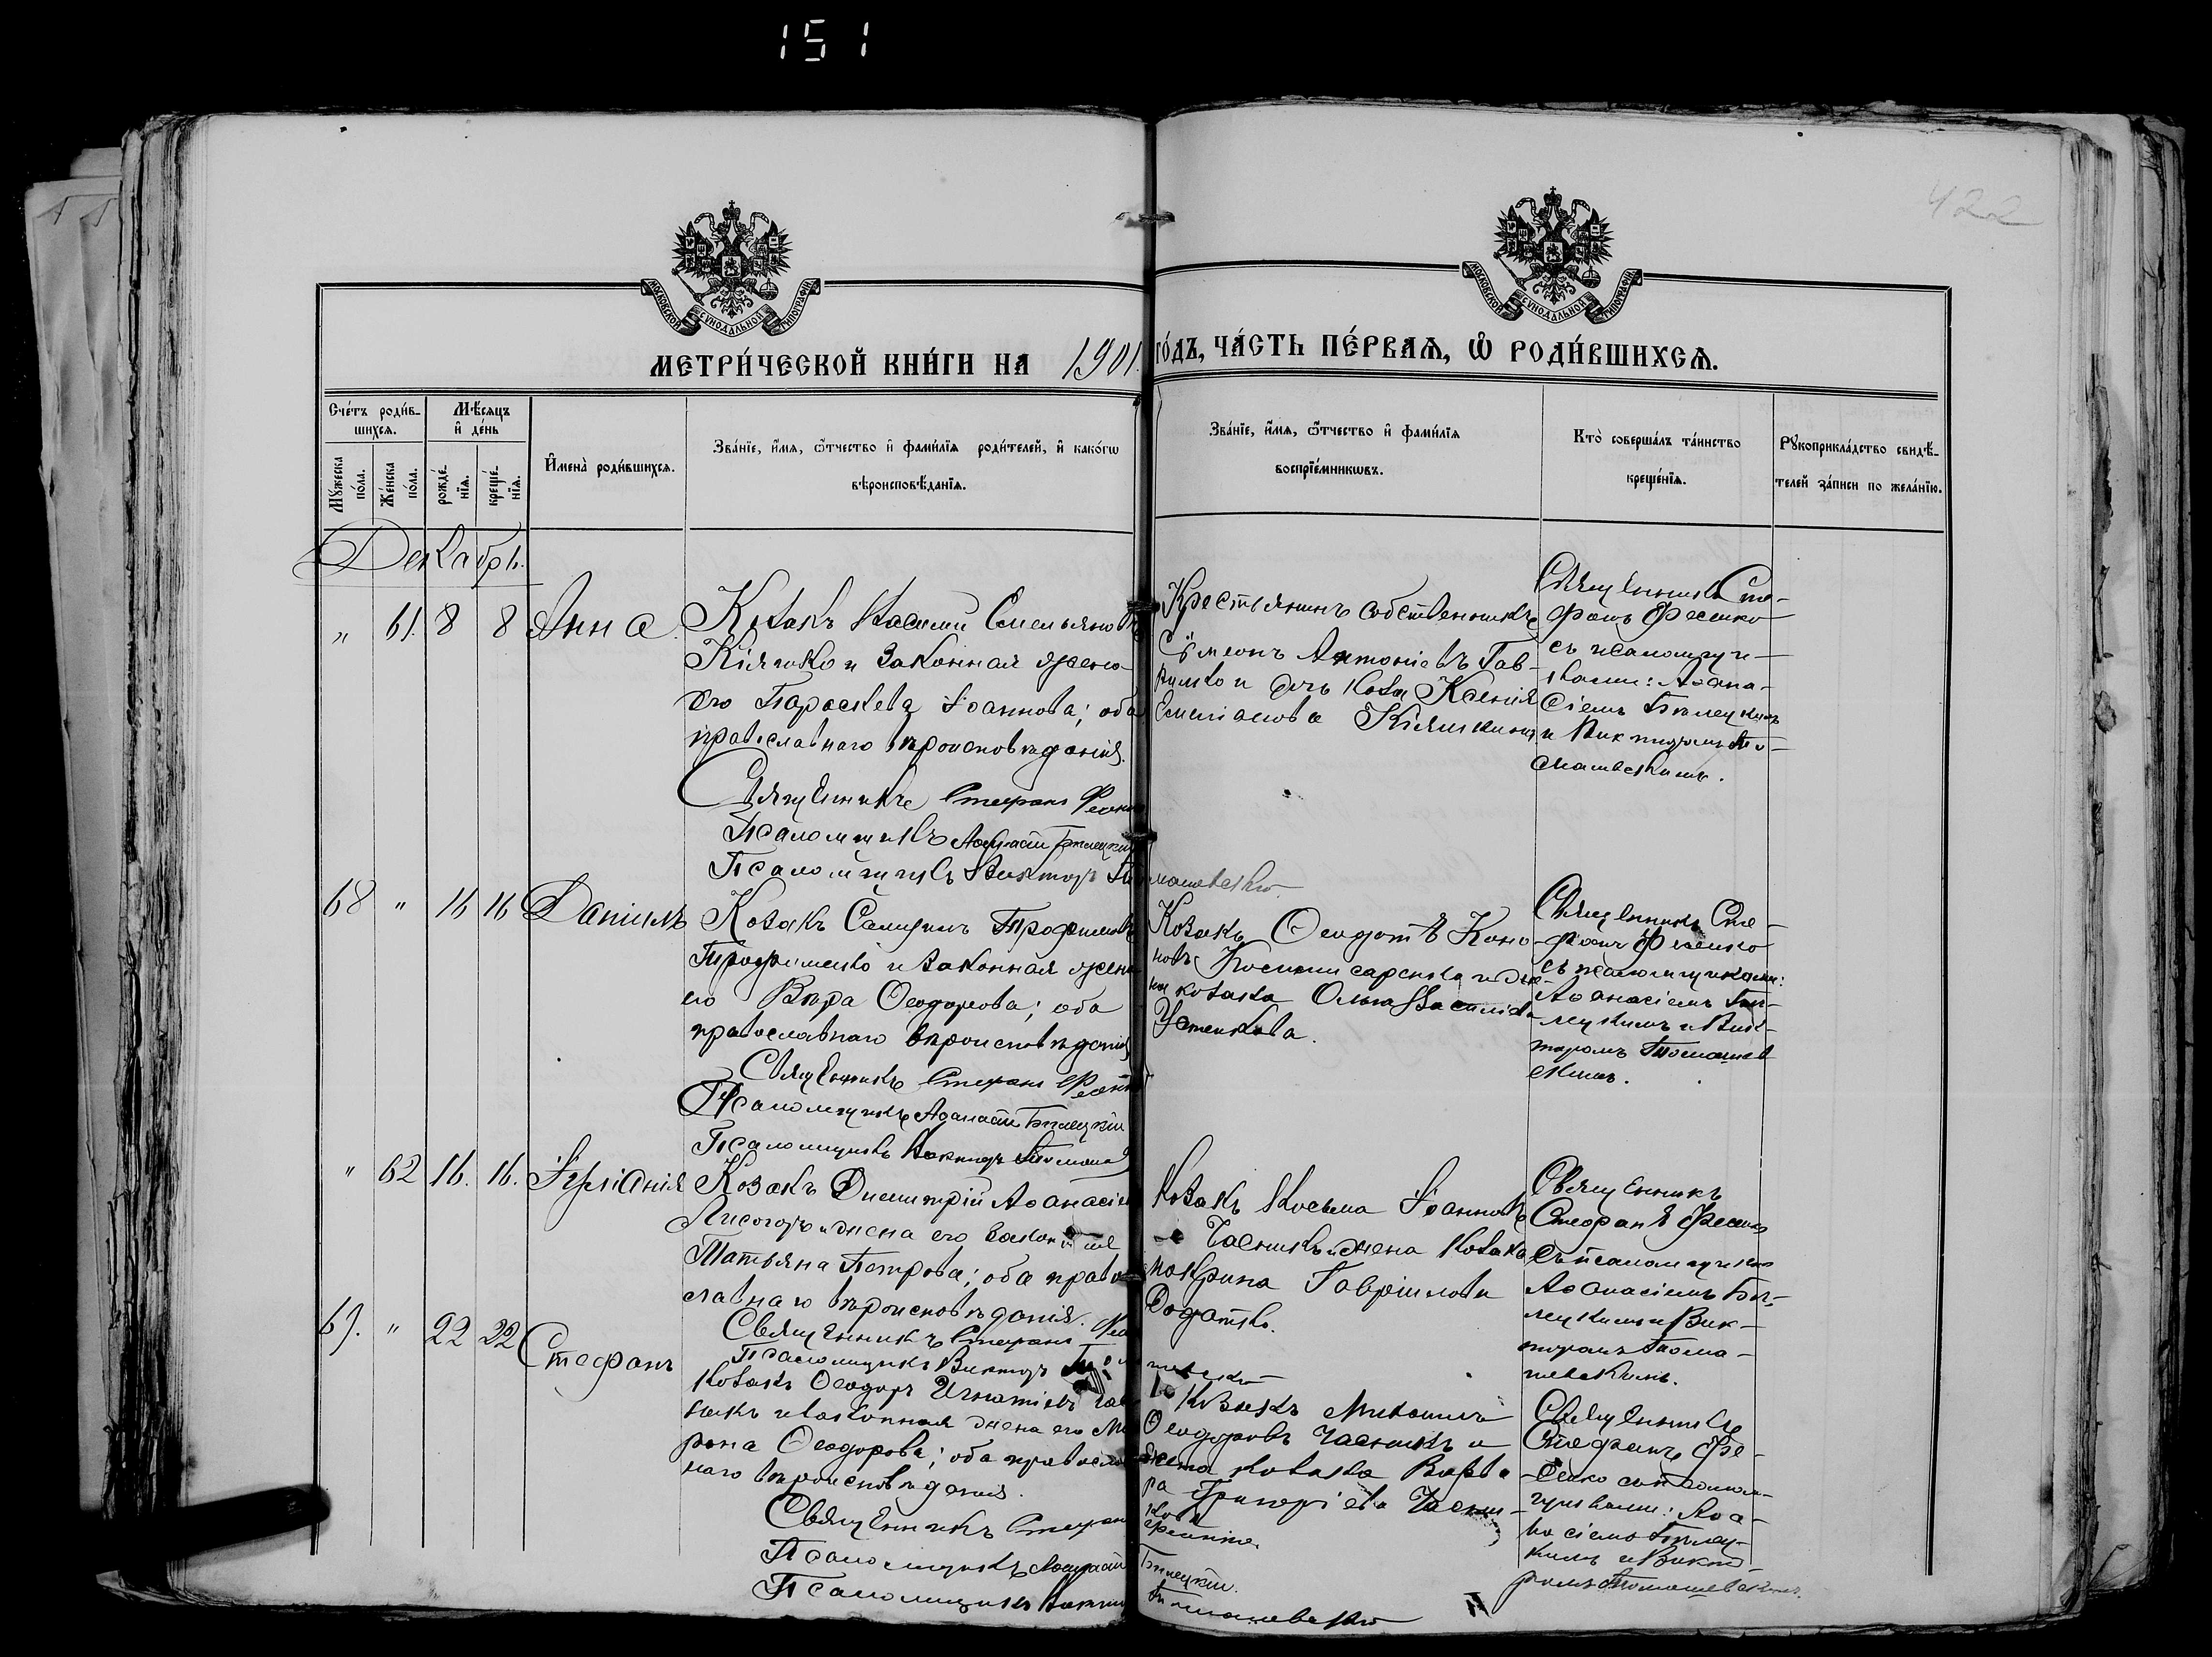 151
422
МОСКОВСКОЙ СУНОДАЛЬНОЙ ТИПОГРАФІИ
МОСКОВСКОЙ СУНОДАЛЬНОЙ ТИПОГРАФІИ
МЕТРИ́ЧЕСКОЙ КНИ́ГИ НА 1901. ГО́ДЪ, ЧА́СТЬ ПЕ́РВАѦ, Ѡ РОДИ́ВШИХСѦ.
Сче́тъ роди́в-
шихсѧ.
Мꙋ́жеска по́ла.
Же́нска по́ла.
Мѣ́сѧцъ
и҆ де́нь
рожде́-
нїѧ.
креще́-
нїѧ.
И҆мена̀ роди́вшихсѧ.
Зва́нїе, и҆́мѧ, ѻ҆́тчество и҆ фами́лїѧ роди́телей, и҆ како́гѡ
вѣроисповѣ́данїѧ.
Зва́нїе, и҆́мѧ, ѻ҆́тчество и҆ фами́лїѧ
воспрїе́мникѡвъ.
Кто̀ соверша́лъ та́инство
креще́нїѧ.
Рꙋкоприкла́дство свидѣ́-
телей за́писи по жела́нїю.
Декабрь.
„ 61. 8 8 Анна.
Козакъ Василій Емельяновъ
Кіяшко и законная жена
его Параскева Іоаннова; оба
православнаго вѣроисповѣданія.
Священникъ Стефанъ
Псаломщикъ Аѳанасій Бѣлецкій
Псаломщикъ Викторъ Томашевскій
Крестьянинъ собственникъ
Сѵмеонъ Антоніевъ Гав-
рилко и дочь козака Ксенія
Емеліанова Кіяшкина
Священникъ Сте-
фанъ Фесенко
съ псаломщи-
ками: Аѳана-
сіемъ Бѣлецкимъ
и Викторомъ То-
машевскимъ.
68 „ 16 16 Даніилъ
Козакъ Трофимовъ
Трофименко и законная жена
его Вѣра Ѳеодорова; оба
православнаго вѣроисповѣданія
Священникъ Стефанъ
Псаломщикъ Аѳанасій Бѣлецкій
Псаломщикъ Викторъ
Козакъ Ѳеодотъ Коно-
новъ и же-
на козака Ольга Василіева
Устенкова.
Священникъ Сте-
фанъ Фесенко
съ псаломщиками:
Аѳанасіемъ Бѣ-
лецкимъ и Вик-
торомъ Томашев
скимъ.
„ 62 16. 16. Іуліанія
Козакъ Димитрій Аѳанасіевъ
Лисогоръ и жена его законная
Татьяна Петрова; оба право
славнаго вѣроисповѣданія.
Священникъ Стефанъ
Псаломщикъ Викторъ
Козакъ Косьма Іоанновъ
Часникъ и жена козака
Макрина Гавріилова
Додатко.
Священникъ
Стефанъ Фесенко
съ псаломщиками
Аѳанасіемъ Бѣ-
лецкимъ и Вик-
торомъ Тома-
шевскимъ.
69. „ 22 22 Стефанъ
Козакъ Ѳеодоръ Игнатіевъ Час
никъ и законная жена его
Ѳеодорова; оба православ
наго вѣроисповѣданія.
Священникъ Стефанъ
Псаломщикъ Аѳанасій Бѣлецкій.
Псаломщикъ Викторъ Томашевскій
Козакъ Михаилъ
Ѳеодоровъ Часникъ и
жена козака Варва
ра Григоріева Часни-
кова
Священникъ
Стефанъ Фе-
сенко съ псалом-
щиками: Аѳа-
насіемъ Бѣлец-
кимъ и Викто
ромъ Томашевскимъ.